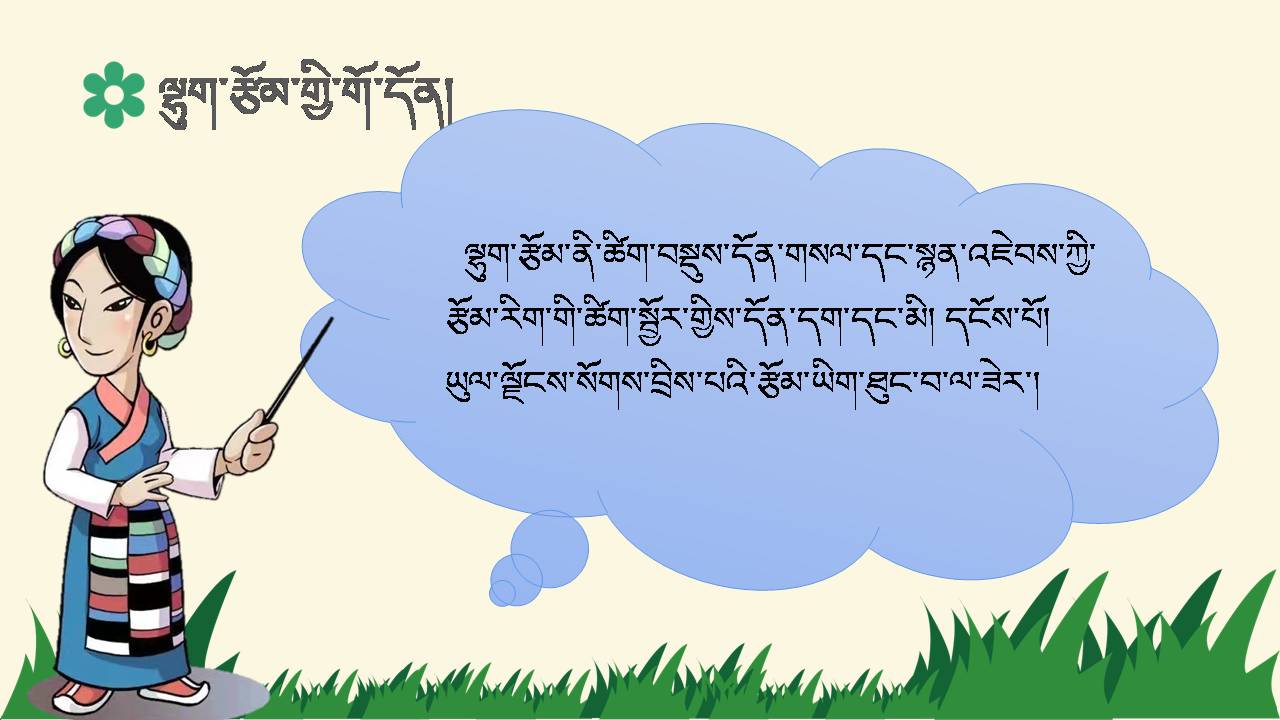 ལྷུག་རྩོམ་གྱི་གོ་དོན།
ལྷུག་རྩོམ་ནི་ཚིག་བསྡུས་དོན་གསལ་དང་སྙན་འཇེབས་ཀྱི་
རྩོམ་རིག་གི་ཚིག་སྦྱོར་གྱིས་དོན་དག་དང་མི། དངོས་པོ།
ཡུལ་ལྗོངས་སོགས་བྲིས་པའི་རྩོམ་ཡིག་ཐུང་བ་ལ་ཟེར་།